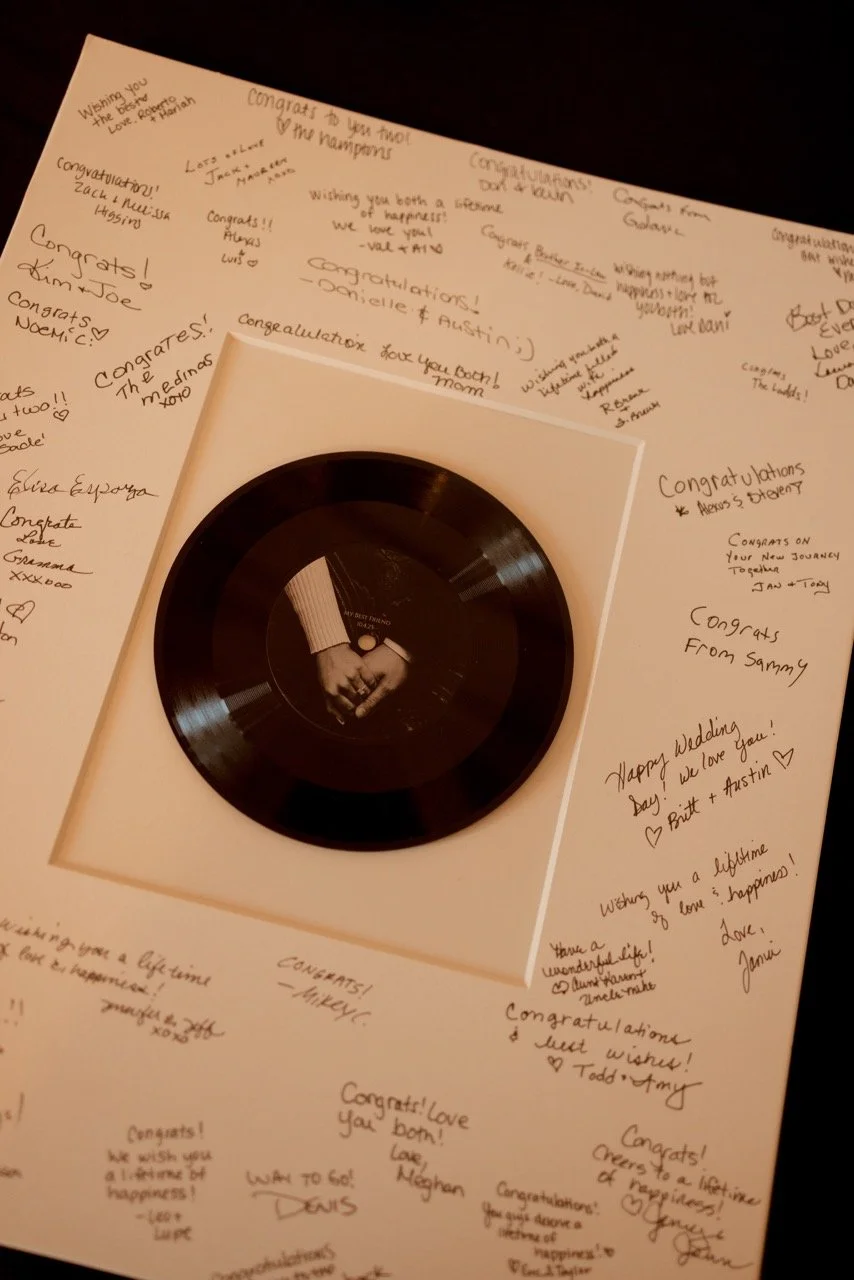 Wishing you
the best
Love, Roberto
+ Mariah
Congrats to you two!
the Hamptons
Lots of Love
Jack +
Maureen
xoxo
Congratulations!
Zack + Melissa
Higgins
Congrats!!
Alexis
Luis
Wishing you both a lifetime
of happiness!
We love you!
- Val + Al
Congratulations!
Don & Kevin
Congrats From
Congratulations
Best wishes
Congrats
Brother In-Law
&
Kellie! - Love, David
Wishing nothing but
happiness + love for
you both!
Love Dani
Best Day
Ever
Love,
Congrats!
Kim + Joe
Congrats
Noemi C.
Congrats!
The
Medinas
xoxo
Congratulations!
- Danielle & Austin ;)
Congratulation Love You Both!
Mom
Wishing you both a
lifetime filled
with
happiness
Congrats
The Ladds!
two!!
Elisa Esparza
Congrats
Love
Gramma
xxxooo
Congratulations
Alexus & Steven
Congrats on
Your New Journey
Together
Jan + Tony
MY BEST FRIEND
10.4.25
Congrats
From Sammy
Happy Wedding
Day! We love you!
Britt + Austin
Wishing you a lifetime
of love & happiness!
Love,
Jamie
Have a
wonderful life!
Aunt Karen +
Uncle Mike
Wishing you a lifetime
of love & happiness!
Jennifer & Jeff
xoxo
Congrats!
- Mikey C.
Congratulations
& best wishes!
Todd + Amy
Congrats! Love
you both!
Love,
Meghan
Congrats!
We wish you
a lifetime of
happiness!
- Leo +
Lupe
Way to go!
Denis
Congratulations!
You guys deserve a
lifetime of
happiness!
Eric & Taylor
Congrats!
Cheers to a lifetime
of happiness!
Congratulations
to the